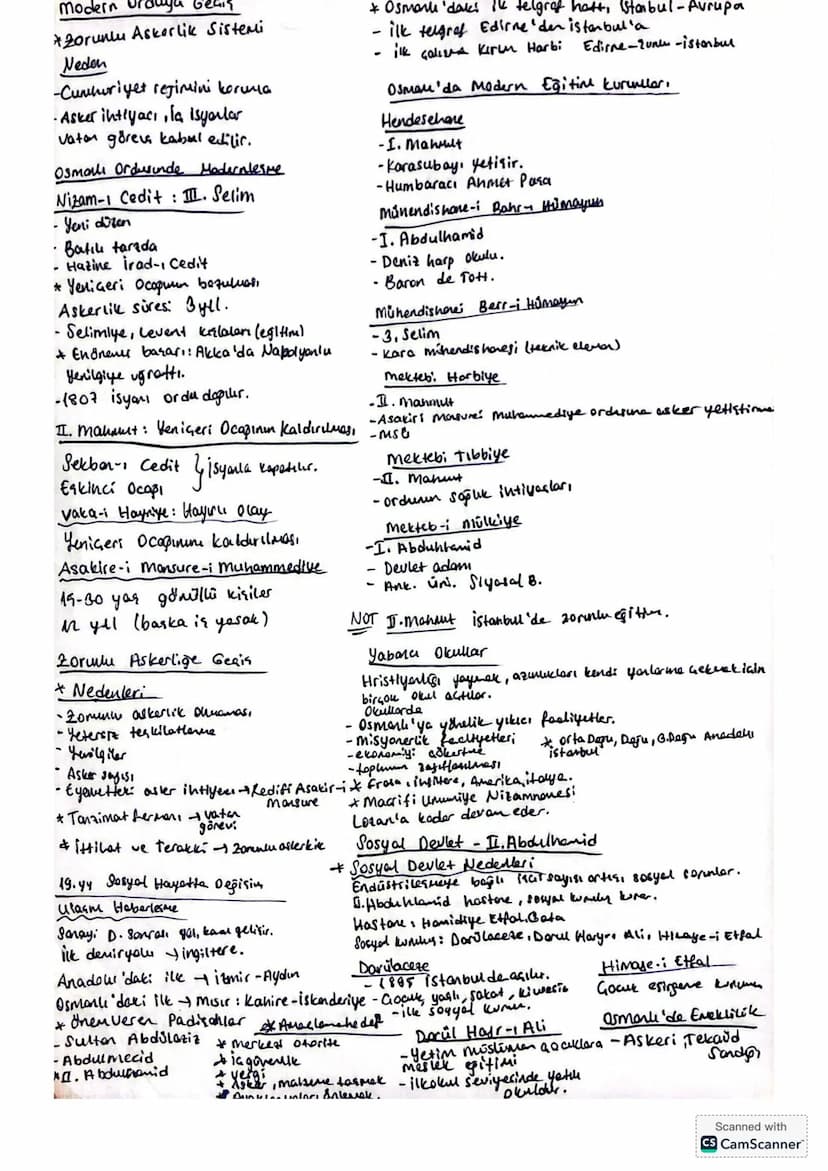 Modern Orduya Geçiş
* Zorunlu Askerlik Sistemi
Neden
- Cumhuriyet rejimini koruma
- Asker ihtiyacı, iç isyanlar
Vatan görevi kabul edilir.
Osmanlı Ordusunda Modernleşme
Nizam-ı Cedit : III. Selim
- Yeni düzen
- Batılı tarzda
- Hazine İrad-ı Cedit
* Yeniçeri Ocağının bozulması
Askerlik süresi 3 yıl.
- Selimiye, Levent kışlaları (eğitim)
* En önemli başarı: Akka'da Napolyonu
yenilgiye uğrattı.
- 1807 isyanı ordu dağılır.
II. Mahmut : Yeniçeri Ocağının Kaldırılması
Sekban-ı Cedit } isyanla kapatılır.
Eşkinci Ocağı
Vaka-i Hayriye : Hayırlı Olay
Yeniçeri Ocağının kaldırılması
Asakire-i Mansure-i Muhammediye
15-30 yaş gönüllü kişiler
12 yıl (başka iş yasak)
Zorunlu Askerliğe Geçiş
* Nedenleri
- Zorunlu askerlik olmaması
- Yetersiz teşkilatlanma
- Yenilgiler
- Asker sayısı
- Eyaletteki asker ihtiyacı → Redifi Asakir-i
Mansure
* Tanzimat Fermanı → vatan
görevi
* İttihat ve Terakki → zorunlu askerlik
19. yy Sosyal Hayatta Değişim
Ulaşım Haberleşme
Sanayi D. Sonrası yol, kanal gelişir.
İlk demiryolu → İngiltere.
Anadolu'daki ilk → İzmir - Aydın
Osmanlı'daki ilk → Mısır : Kahire - İskenderiye
* Önem Veren Padişahlar
- Sultan Abdülaziz
- Abdulmecid
* II. Abdulhamid
* Amaçlanan hedef
* merkezi otorite
* iç güvenlik
* vergi
* Asker, malzeme taşımak
* Osmanlı'daki ilk telgraf hattı, İstanbul - Avrupa
- ilk telgraf Edirne'den İstanbul'a
- ilk Kırım Harbi Edirne - - İstanbul
Osmanlı'da Modern Eğitim Kurumları
Hendesehane
- I. Mahmut
- Karasubayı yetişir.
- Humbaracı Ahmet Paşa
Mühendishane-i Bahr-ı Hümayun
- I. Abdulhamid
- Deniz harp okulu.
- Baron de Tott.
Mühendishanei Berr-i Hümayun
- 3. Selim
- Kara mühendishanesi (teknik eleman)
Mektebi Harbiye
- II. Mahmut
- Asakiri Mansurei Muhammediye ordusuna asker yetiştirme
- MSÜ
Mektebi Tıbbiye
- II. Mahmut
- ordunun sağlık ihtiyaçları
Mekteb-i Mülkiye
- I. Abdulhamid
- Devlet adamı
- Ank. Üni. Siyasal B.
NOT II. Mahmut İstanbul'de zorunlu eğitim.
Yabancı Okullar
Hristiyanlığı yaymak, azınlıkları kendi yanlarına çekmek için
birçok okul açtılar.
Okullarda
- Osmanlı'ya yönelik yıkıcı faaliyetler.
- Misyonerlik faaliyetleri
- ekonomiyi çökertme
- toplumun zayıflatılması
* Orta Doğu, Doğu, G.Doğu Anadolu
İstanbul
* Fransa, İngiltere, Amerika, İtalya.
* Maarifi Umumiye Nizamnamesi
Lozan'a kadar devam eder.
Sosyal Devlet - II. Abdulhamid
* Sosyal Devlet Nedenleri
Endüstrileşmeye bağlı işçi sayısı artışı sosyal sorunlar.
II. Abdulhamid hastane, sosyal kurumlar kurar.
Hastane : Hamidiye Etfal
Sosyal kuruluş : Darülaceze, Darul Hayr-ı Ali, Himaye-i Etfal
Darülaceze
- 1895 İstanbulda açılır.
- Çocuk, yaşlı, sakat, kimsesiz
- ilk sosyal kurum.
Himaye-i Etfal
Çocuk esirgeme kurumu
Darül Hayr-ı Ali
- Yetim müslüman çocuklara
meslek eğitimi
- ilkokul seviyesinde yatılı
okuldur.
Osmanlı'de Emeklilik
- Askeri Tekaüd
Sandığı
Scanned with
CS CamScanner